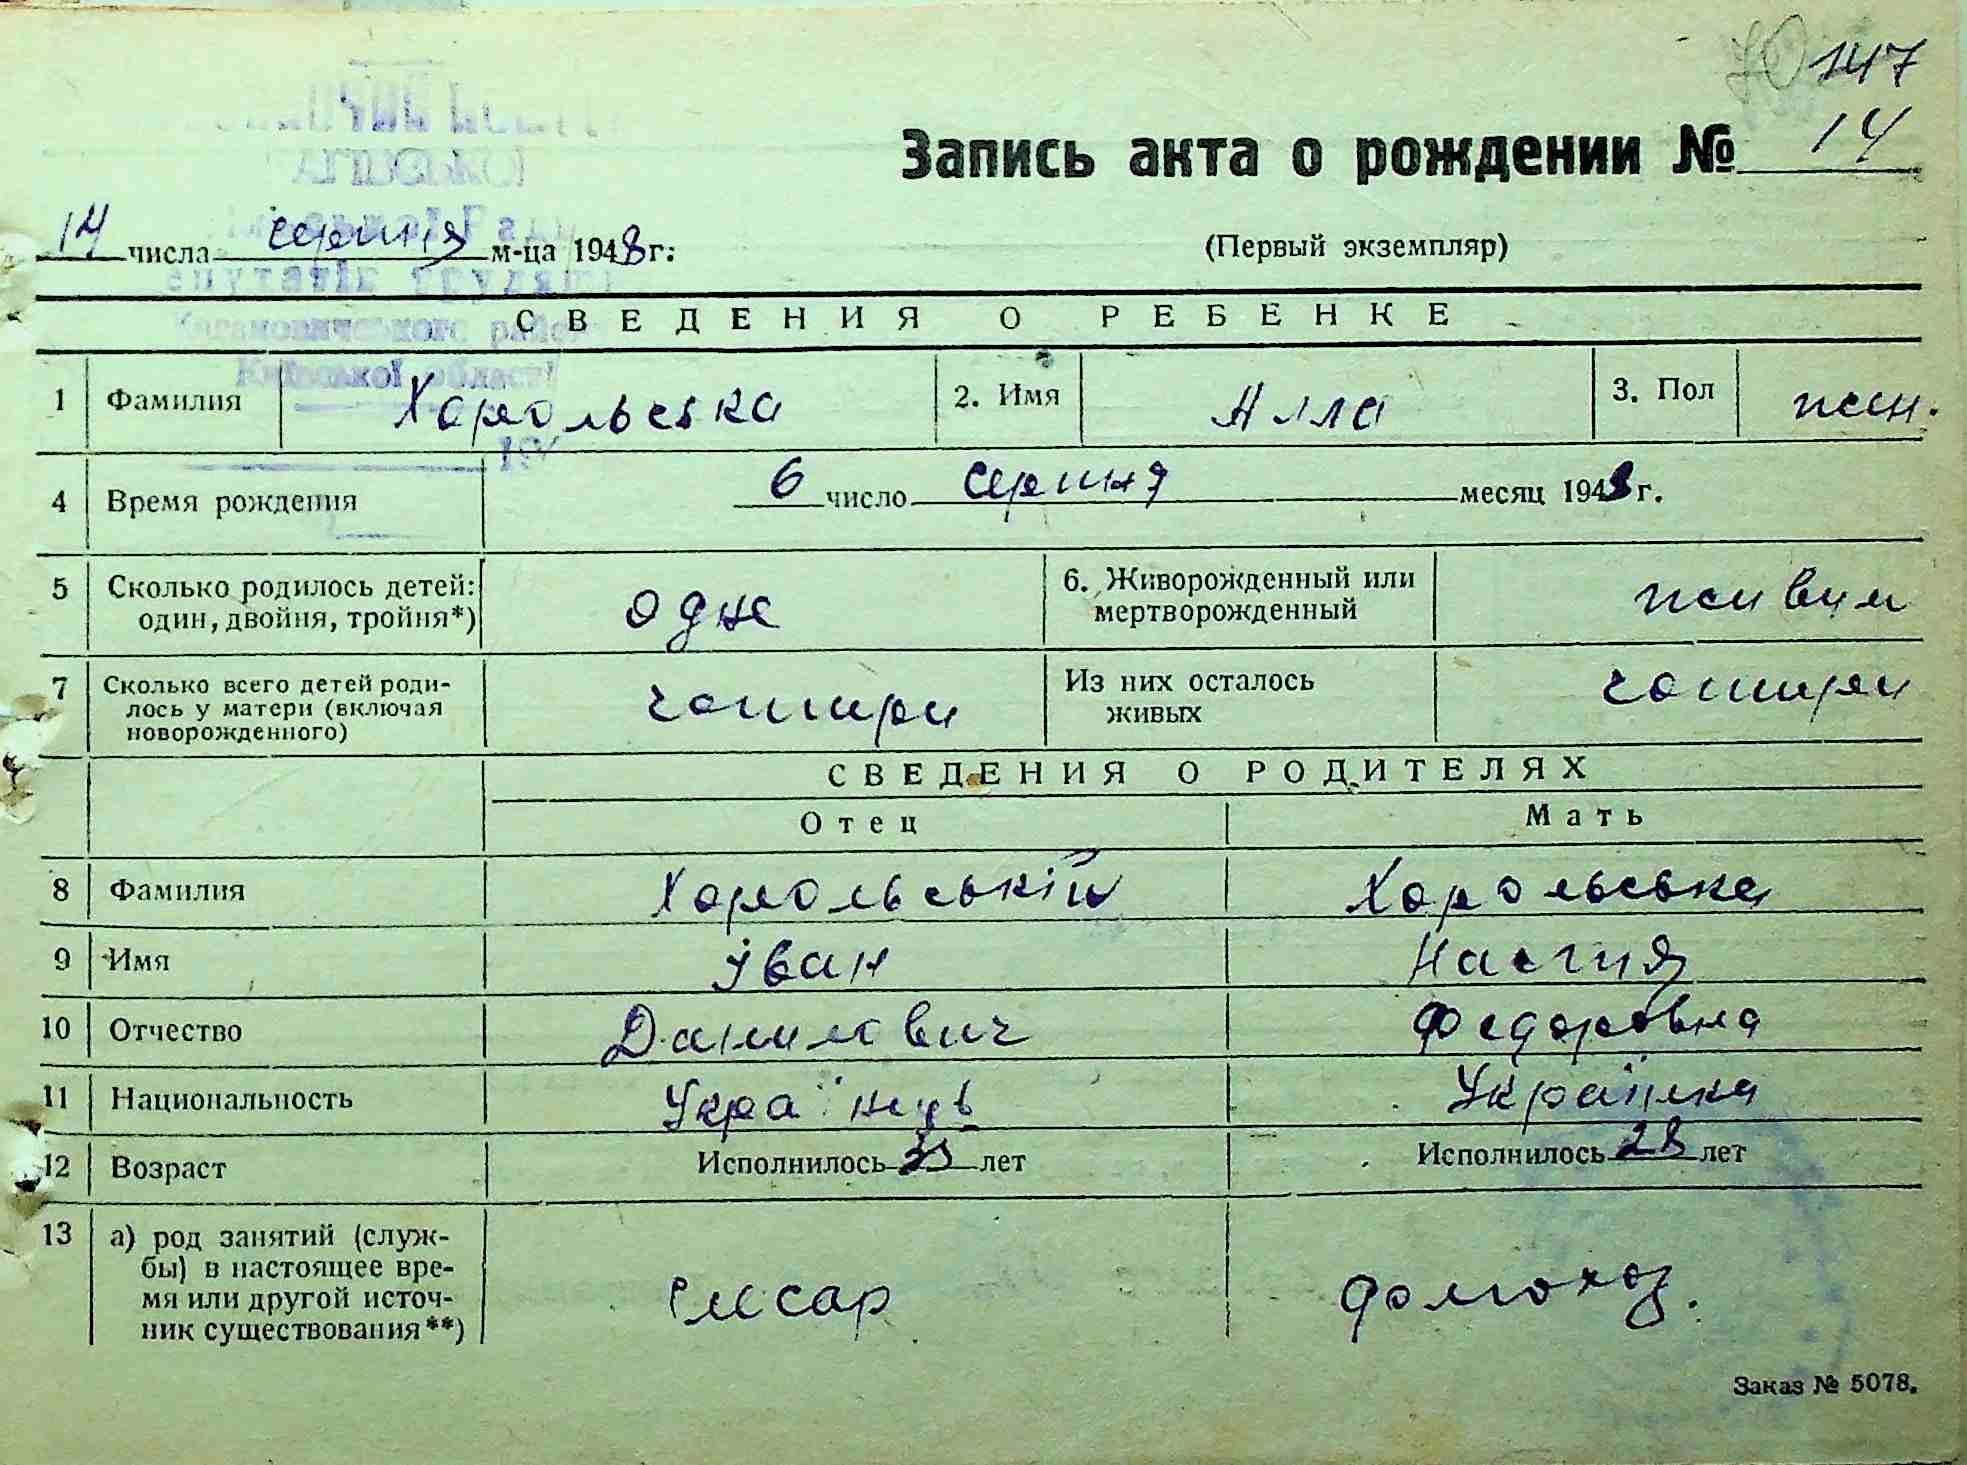 147
Запись акта о рождении № 14
14 числа серпня м-ца 1948 г:
(Первый экземпляр)
депутатів трудящих
Кагановичського району
Київської області
194
СВЕДЕНИЯ О РЕБЕНКЕ
1 Фамилия Хорольська 2. Имя Алла 3. Пол жін.
4 Время рождения 6 число серпня месяц 1948 г.
5 Сколько родилось детей: один, двойня, тройня*) одне 6. Живорожденный или мертворожденный живим
7 Сколько всего детей роди-
лось у матери (включая
новорожденного) чотири Из них осталось живых чотири
СВЕДЕНИЯ О РОДИТЕЛЯХ
Отец Мать
8 Фамилия Хорольський Хорольська
9 Имя Іван Настя
10 Отчество Данилович Федоровна
11 Национальность Українць Українка
12 Возраст Исполнилось лет Исполнилось 28 лет
13 а) род занятий (служ-
бы) в настоящее вре-
мя или другой источ-
ник существования**) слісар домогоз.
Заказ № 5078.